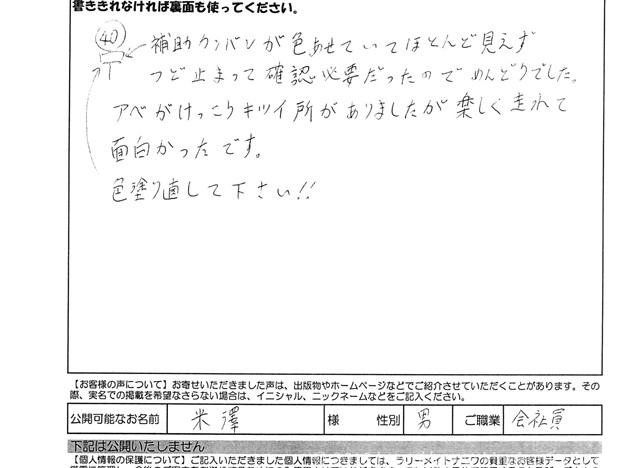 書ききれなければ裏面も使ってください。
40
補助カンバンが色あせていてほとんど見えず
つど止まって確認必要だったのでめんどりでした。
アベがけっこうキツイ所がありましたが楽しく走れて
面白かったです。
色塗り直して下さい!!
【お客様の声について】お寄せいただきました声は、出版物やホームページなどでご紹介させていただくことがあります。その
際、実名での掲載を希望なさらない場合は、イニシャル、ニックネームなどをご記入ください。
公開可能なお名前 米澤 様 性別 男 ご職業 会社員
下記は公開いたしません
【個人情報の保護について】ご記入いただきました個人情報につきましては、ラリーメイトナニワの貴重なお客様データとして